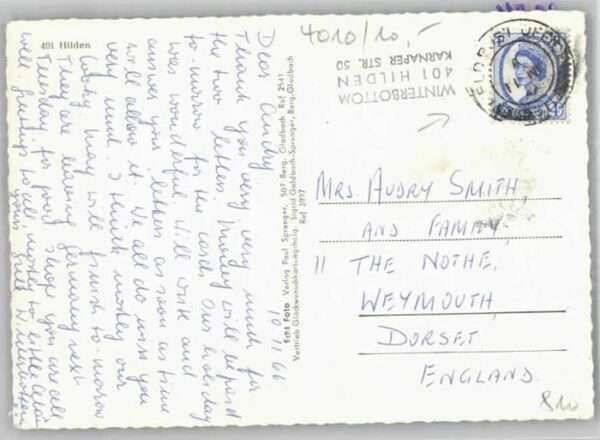 401 Hilden
10/11 66
Dear Audry
Thank you very much for
the two letters, money will be paid
to-morrow for the cards. Our holiday
was wonderful. Will write and
answer your letters as soon as time
will allow it. We all do miss you
very much. I think mostly our
will finish to-morrow
They are leaving Germany next
Tuesday for good. I hope you are all
well. Greetings to all mostly to little
yours
Echt Foto Verlag Paul Sprenger, 507 Berg. Gladbach Ruf 2141
Vertrieb Glückwunschkartenverlag Sigrid Goldbach-Sprenger, Berg.-Gladbach
Ruf 3977
4010/10
WINTERBOTTOM
401 HILDEN
KARNAPER STR. 50
MRS. AUDRY SMITH,
AND FAMILY,
11 THE NOTHE,
WEYMOUTH,
DORSET,
ENGLAND.